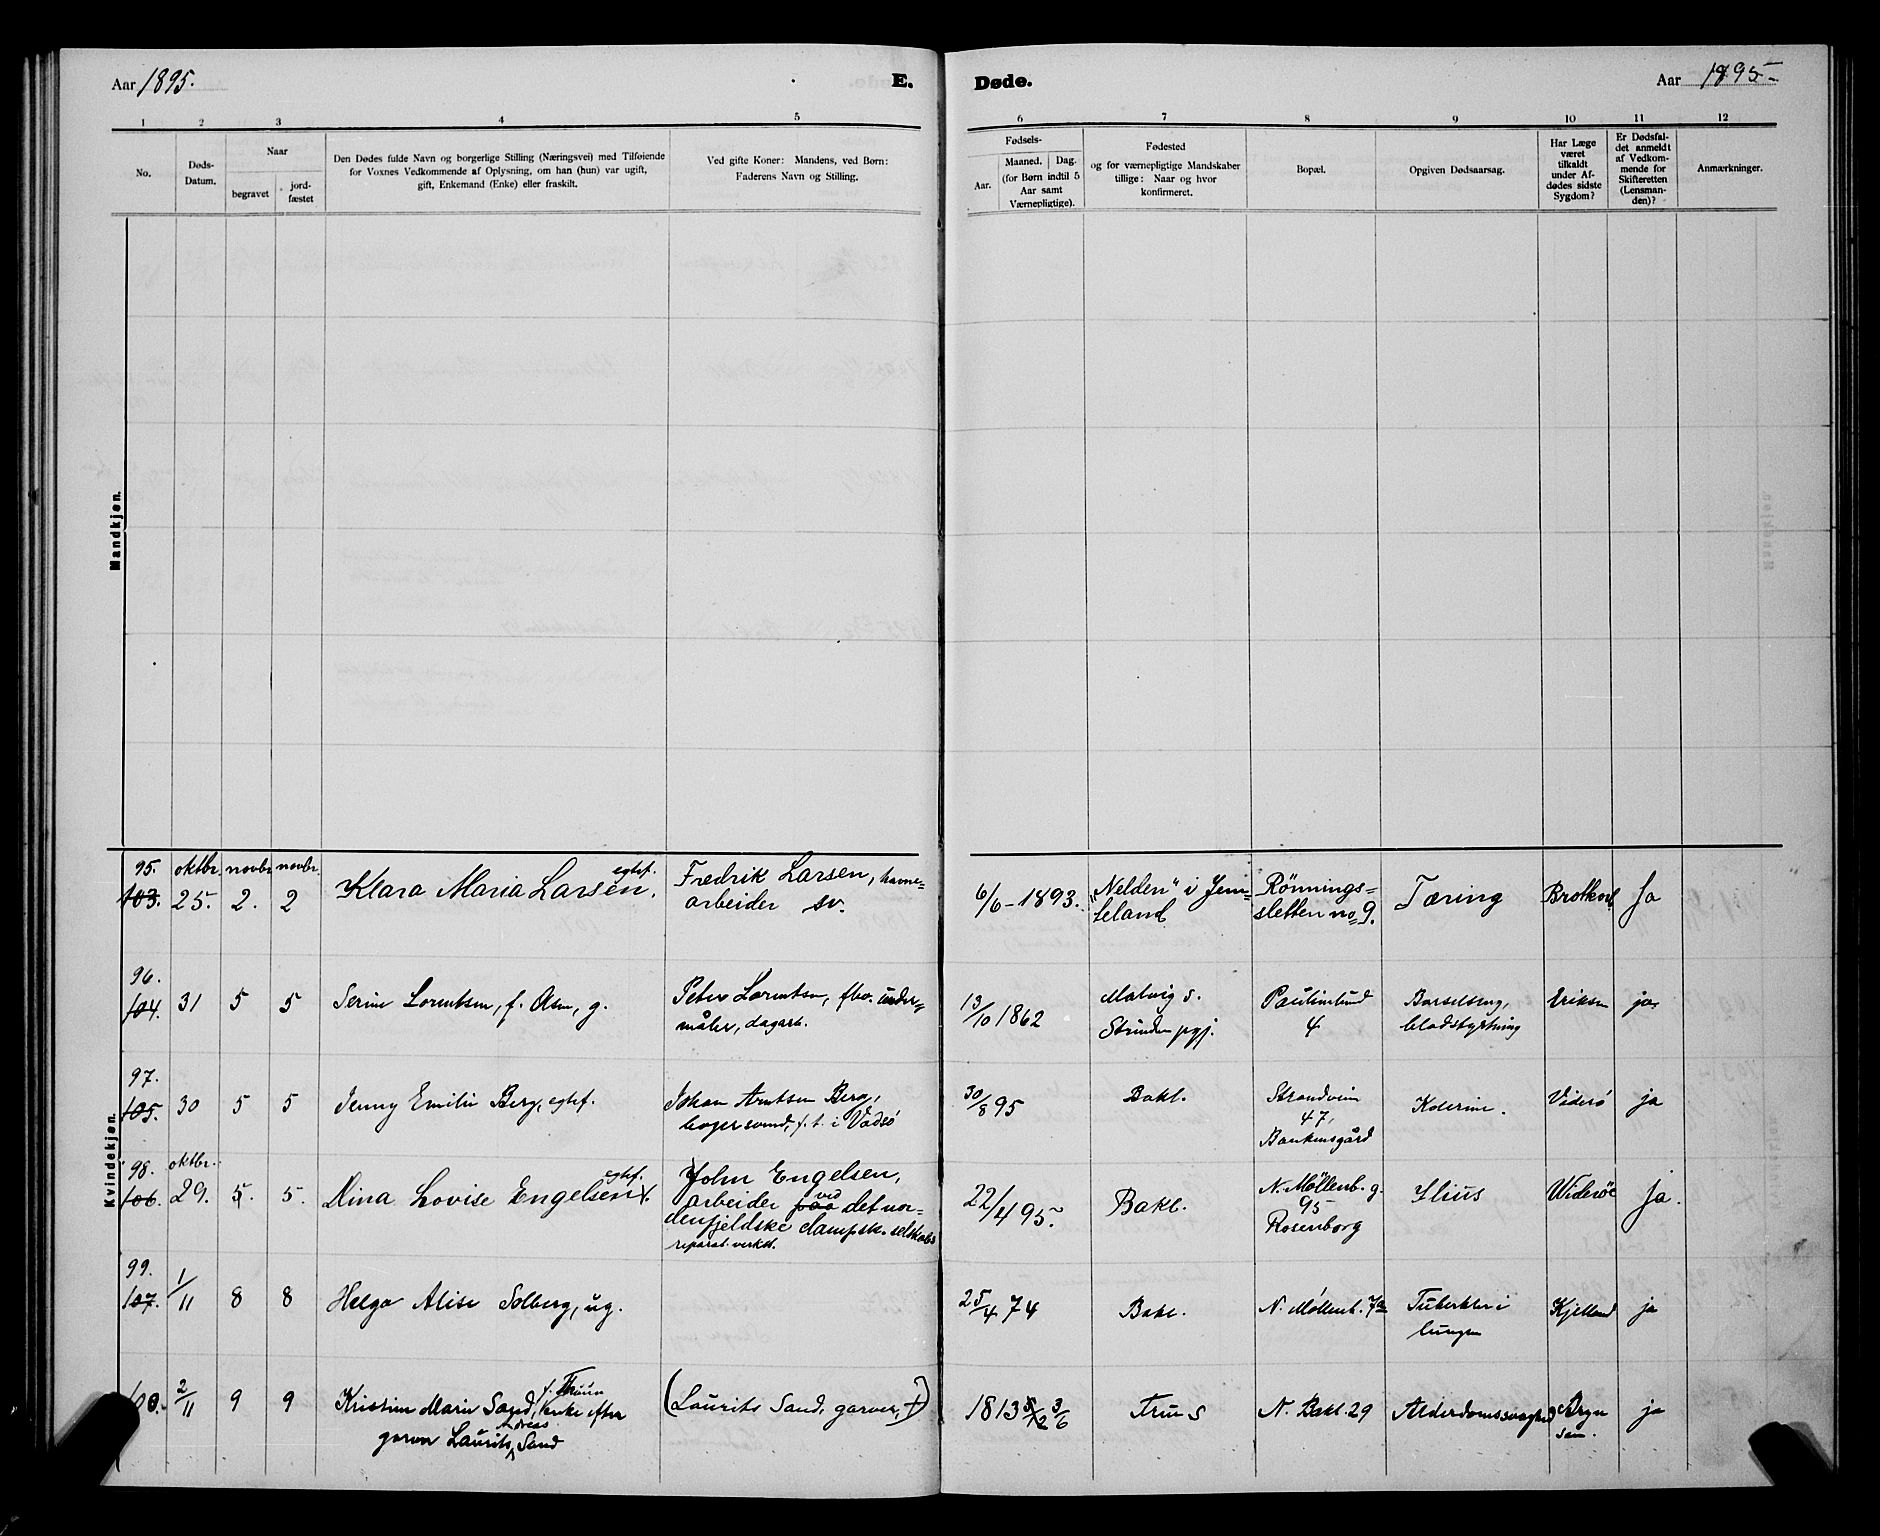 Aar 1895.
E.
Døde.
Aar 1895
1 2 3 4 5 6 7 8 9 10 11 12
No.
Døds-
Datum.
Naar
begravet
jord-
fæstet
Den Dødes fulde Navn og borgerlige Stilling (Næringsvei) med Tilføiende
for Voxnes Vedkommende af Oplysning, om han (hun) var ugift,
gift, Enkemand (Enke) eller fraskilt.
Ved gifte Koner: Mandens, ved Børn:
Faderens Navn og Stilling.
Fødsels-
Aar.
Maaned. Dag.
(for Børn indtil 5
Aar samt
Værnepligtige).
Fødested
og for værnepligtige Mandskaber
tillige: Naar og hvor
konfirmeret.
Bopæl.
Opgiven Dødsaarsag.
Har Læge
været
tilkaldt
under Af-
dødes sidste
Sygdom?
Er Dødsfal-
det anmeldt
af Vedkom-
mende for
Skifteretten
(Lensman-
den)?
Anmærkninger.
Mandkjøn.
Kvindekjøn.
95.
103.
oktbr.
25.
novbr
2.
novbr.
2
Klara Maria Larsen, egtef.
Fredrik Larsen, havne-
arbeider sv.
6/6-1893.
"Nelden" i Jem-
teland
Rönnings-
sletten no 9.
Tæring
Brotkorb
Ja
96.
104.
31
5
5
Serine Lorentsen, f. Asen, g.
Peter Lorentsen,
måler, dagarb.
13/10 1862
Malvig s.
Strinden pgj.
Paulinelund
4
Barselseng,
blodstyrtning
Eriksen
ja
97.
105.
30
5
5
Jenny Emilie Berg, egtef.
Johan Arntsen Berg,
bagersvend, f.t. i Vadsö
30/8 95
Bakl.
Strandveien
47,
Bankensgård
Kolerine.
Viderö
ja
98.
106.
oktbr.
29.
5.
5.
Nina Lovise Engelsen egtef.
John Engelsen,
arbeider paa ved det nor-
denfjeldske dampsk. selskabs
reparat. verkst.
22/4 95.
Bakl.
N. Möllenb. g.
95
Rosenborg
Ilius
Wideröe
Ja.
99.
107.
1/11
8
8
Helga Alise Solberg, ug.
25/4 74
Bakl.
N. Möllenb. 72
Tuberkler i
lungen
Kjelland
ja
100.
2/11
9
9
Kristine Marie Sand, f. Thaun enke efter
garver Laurits Andreas Sand
(Laurits Sand, garver, †)
1813 3/6
N. Bakl. 29
Alderdomssvaghed
Bryn
sen.
ja